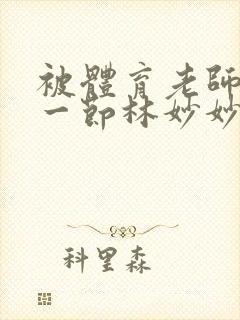 被體育老師
一節林妙妙
科里森